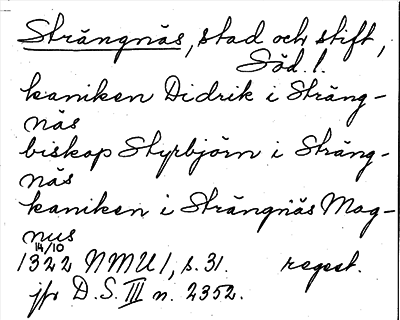 Strängnäs, stad och stift,
Söd. l.
kaniken Didrik i Sträng-
näs
biskop Styrbjörn i Sträng-
näs
kaniken i Strängnäs Mag-
nus
14/10
1322 NMU 1, s. 31. regest.
jfr D.S. III n. 2352.